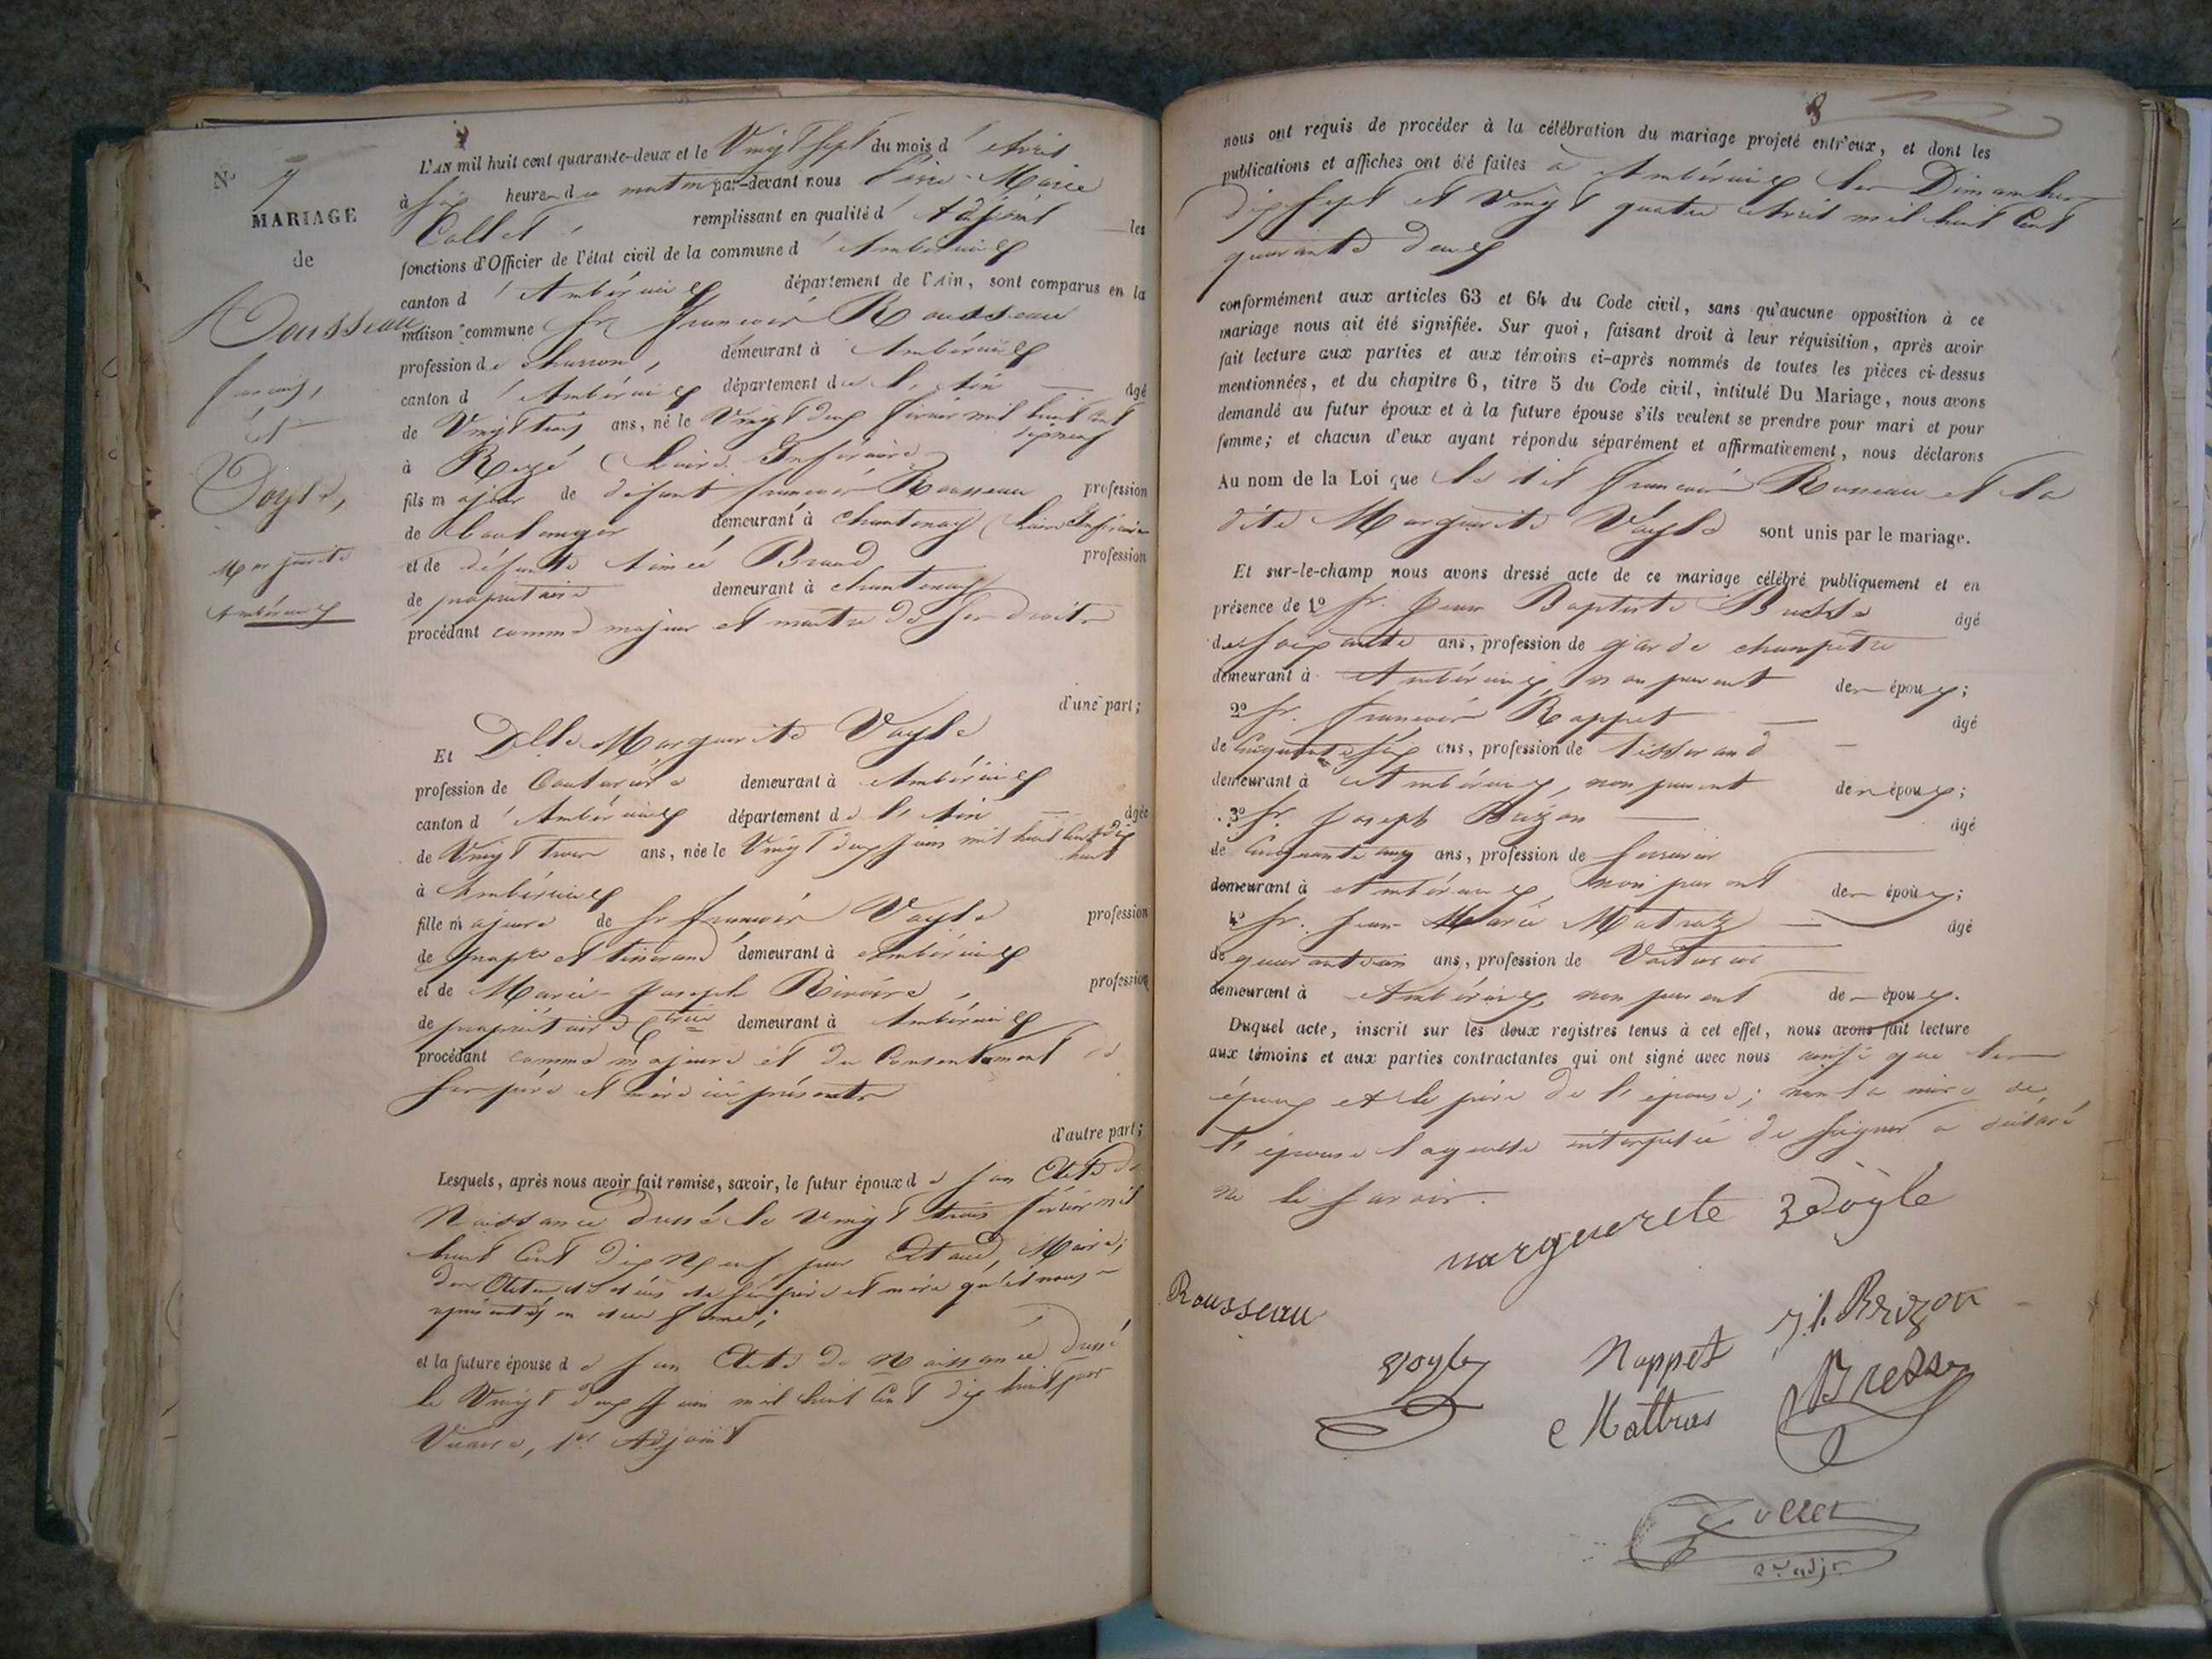 7
N° 7
MARIAGE
de
Rousseau
françois,
et
Voyle,
Marguerite
Ambérieux
L'AN mil huit cent quarante-deux et le Vingt sept du mois d'Avril
à six heures du matin par-devant nous Pierre-Marie
Collet, remplissant en qualité d'Adjoint les
fonctions d'Officier de l'état civil de la commune d'Ambérieux
canton d'Ambérieux département de l'Ain, sont comparus en la
maison commune Sr. françois Rousseau
profession de Charron, demeurant à Ambérieux
canton d'Ambérieux département de l'Ain âgé
de Vingt trois ans, né le Vingt deux février mil huit cent
dix neuf
à Rezé (Loire Inférieure)
fils majeur de défunt françois Rousseau profession
de boulanger demeurant à Chantenay (Loire Inférieure
et de défunte Aimée Braud profession
de propriétaire demeurant à chantenay
procédant comme majeur et maitre de ses droits
d'une part;
Et Dlle Marguerite Voyle
profession de Couturière demeurant à Ambérieux
canton d'Ambérieux département de l'Ain âgée
de Vingt trois ans, née le Vingt deux Juin mil huit cent dix
huit
à Ambérieux
fille majeure de Sr françois Voyle profession
de propre et tisserand demeurant à Ambérieux
et de Marie-Joseph Rivoire, profession
de propriétaire demeurant à Ambérieux
procédant comme majeure et du Consentement de
ses père et mère ici présents
d'autre part;
Lesquels, après nous avoir fait remise, savoir, le futur époux de son Acte de
Naissance dressé le Vingt trois février mil
huit Cent dix Neuf par Maire;
des Actes de décès de ses père et mère qu'il nous a
en due forme;
et la future épouse de son Acte de Naissance dressé
le Vingt deux Juin mil huit Cent dix huit par
1er Adjoint
8
nous ont requis de procéder à la célébration du mariage projeté entr'eux, et dont les
publications et affiches ont été faites à Ambérieux les Dimanches
dix sept et Vingt quatre Avril mil huit Cent
quarante deux
conformément aux articles 63 et 64 du Code civil, sans qu'aucune opposition à ce
mariage nous ait été signifiée. Sur quoi, faisant droit à leur réquisition, après avoir
fait lecture aux parties et aux témoins ci-après nommés de toutes les pièces ci-dessus
mentionnées, et du chapitre 6, titre 5 du Code civil, intitulé Du Mariage, nous avons
demandé au futur époux et à la future épouse s'ils veulent se prendre pour mari et pour
femme; et chacun d'eux ayant répondu séparément et affirmativement, nous déclarons
Au nom de la Loi que le dit françois Rousseau et la
dite Marguerite Voyle sont unis par le mariage.
Et sur-le-champ nous avons dressé acte de ce mariage célébré publiquement et en
présence de 1° Sr. Jean Baptiste Bresse âgé
de soixante ans, profession de garde champêtre
demeurant à Ambérieux, non parent des époux;
2° Sr. françois Nappet âgé
de Cinquante six ans, profession de tisserand
demeurant à Ambérieux, non parent des époux;
3° Sr. Joseph Brizon âgé
de Cinquante cinq ans, profession de serrurier
demeurant à Ambérieux, non parent des époux;
4° Sr. Jean Marie Matraz âgé
de quarante un ans, profession de Voiturier
demeurant à Ambérieux, non parent des époux.
Duquel acte, inscrit sur les deux registres tenus à cet effet, nous avons fait lecture
aux témoins et aux parties contractantes qui ont signé avec nous ainsi que les
époux et le père de l'épouse; non la mère de
l'épouse laquelle interpellée de signer a déclaré
ne le savoir.
marguerete voyle
Rousseau
J. l. Brizon
voyle
Nappet
Bresse
Mattras
Collet
2e adjt